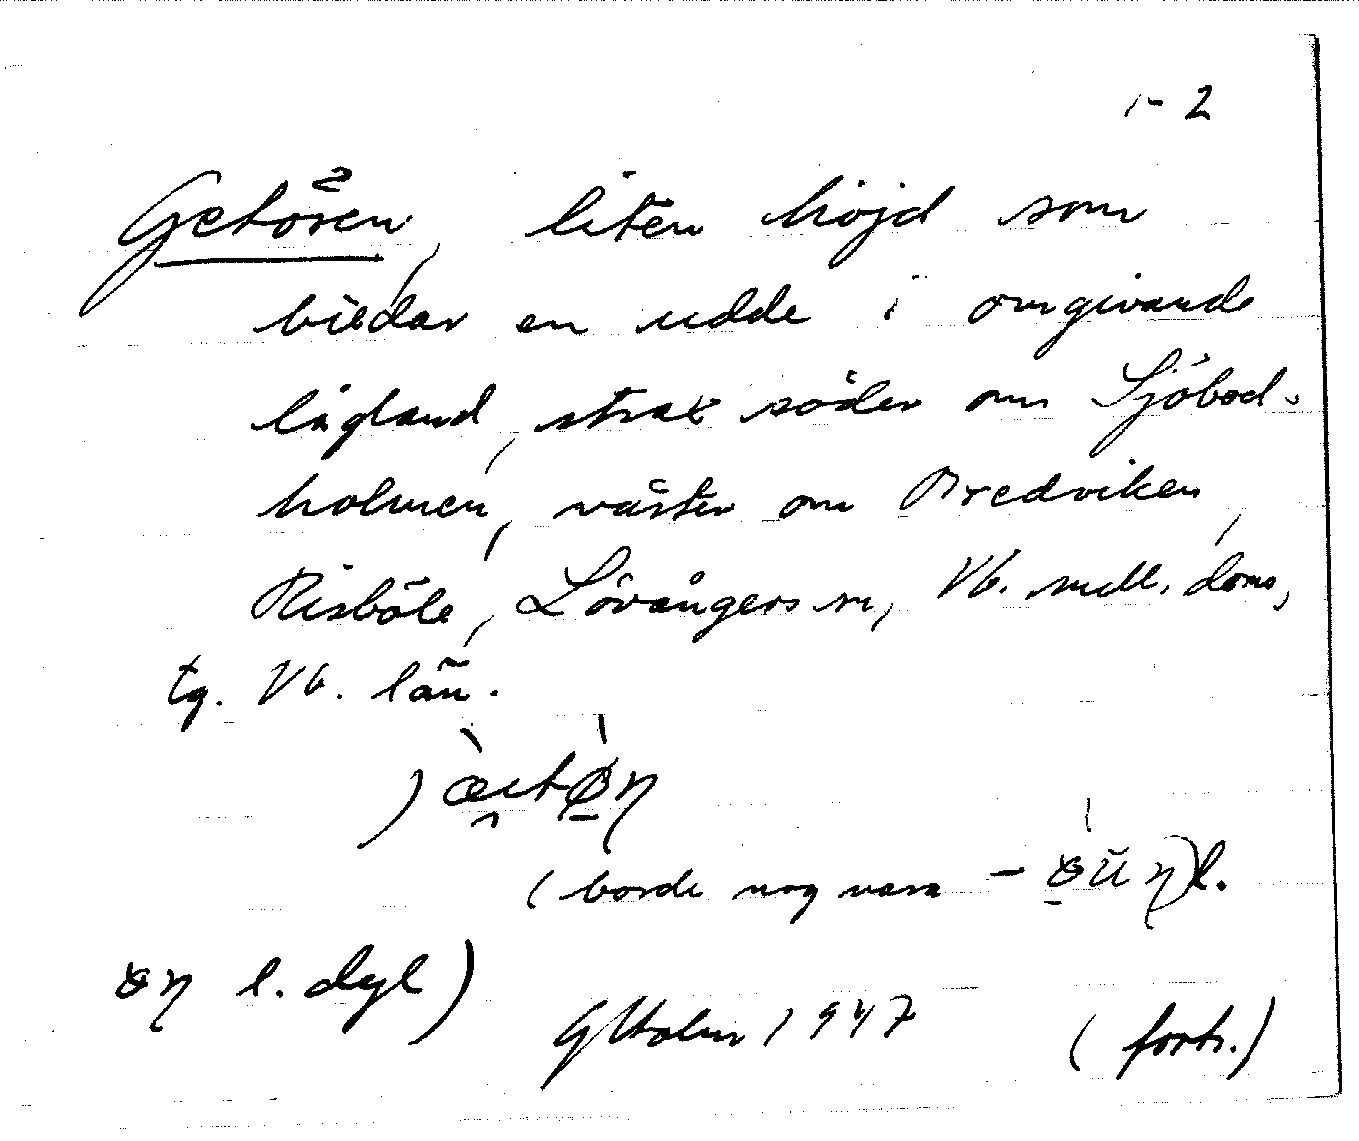 1-2
Getören, liten höjd som
bildar en udde i omgivande
lågland, strax söder om Sjöbod-
holmen, väster om Bredviken,
Risböle, Lövångers sn, Vb. mell. doms,
tg. Vb. län.
(borde nog vara
l. dyl)
G Holm 1947 (forts.)